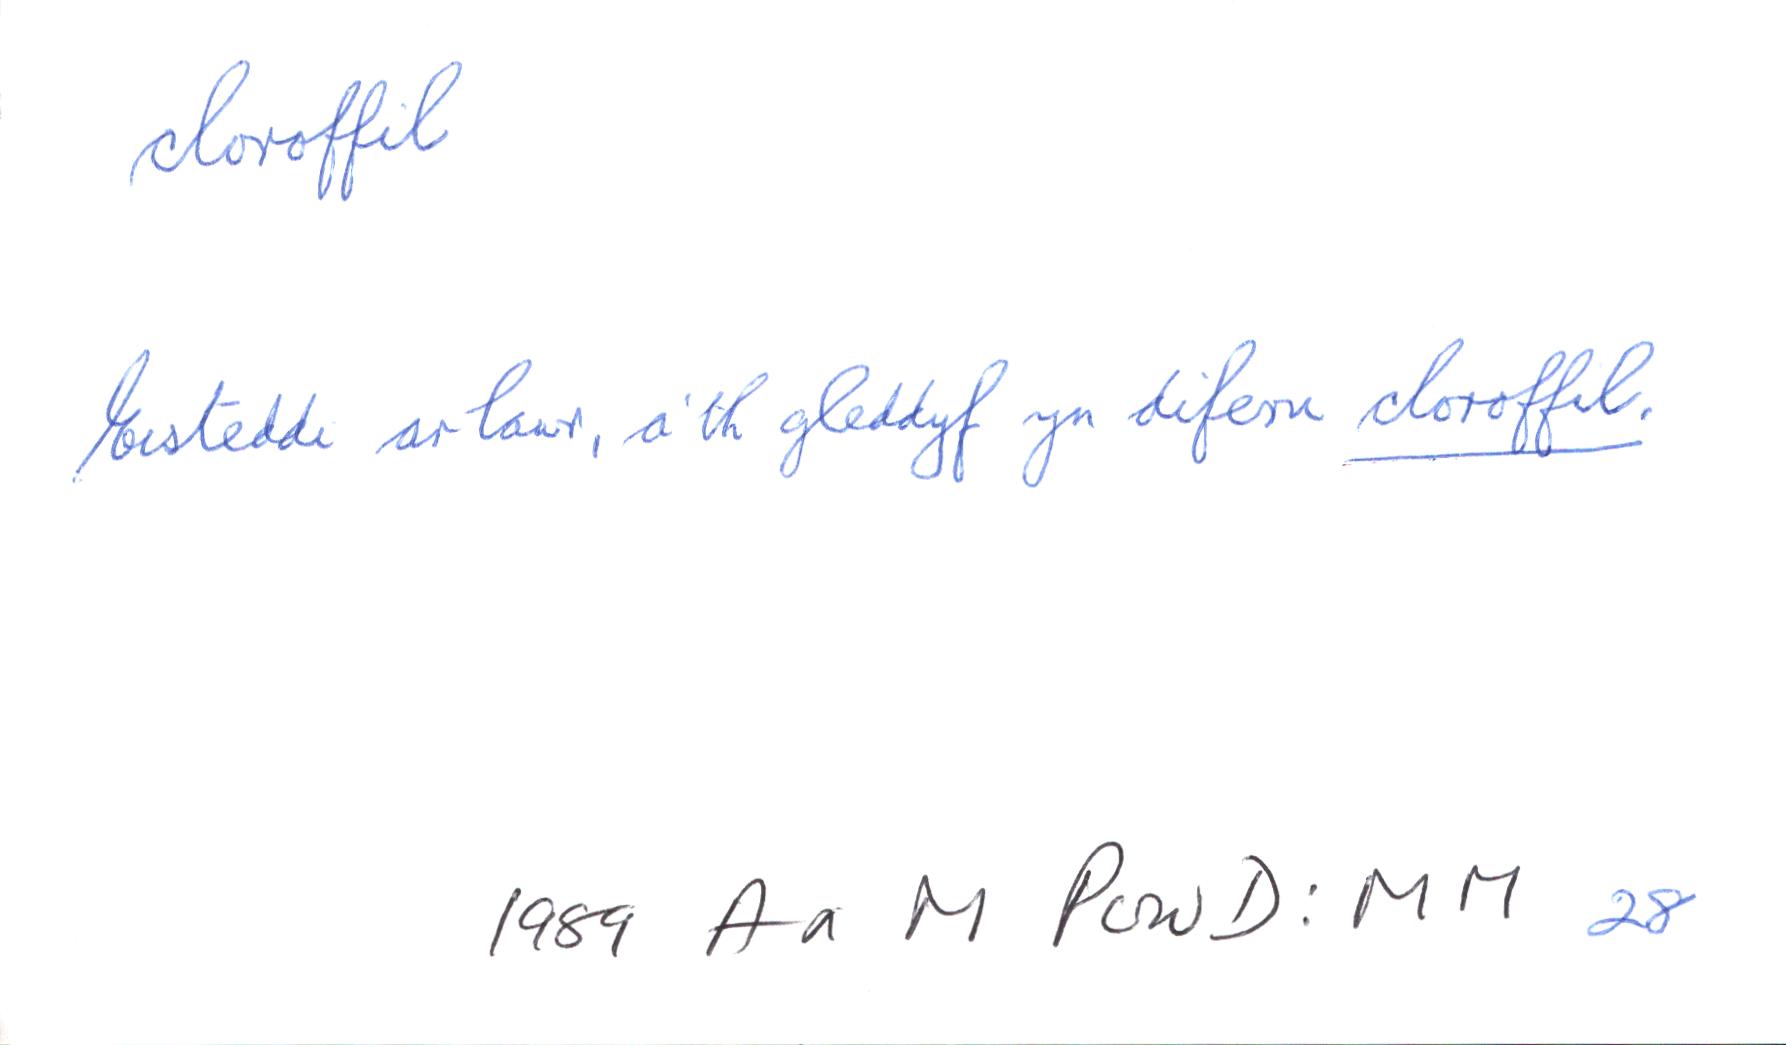 cloroffil
Eisteddi ar lawr, a'th gleddyf yn diferu cloroffil.
1989 A a M PowD: MM 28